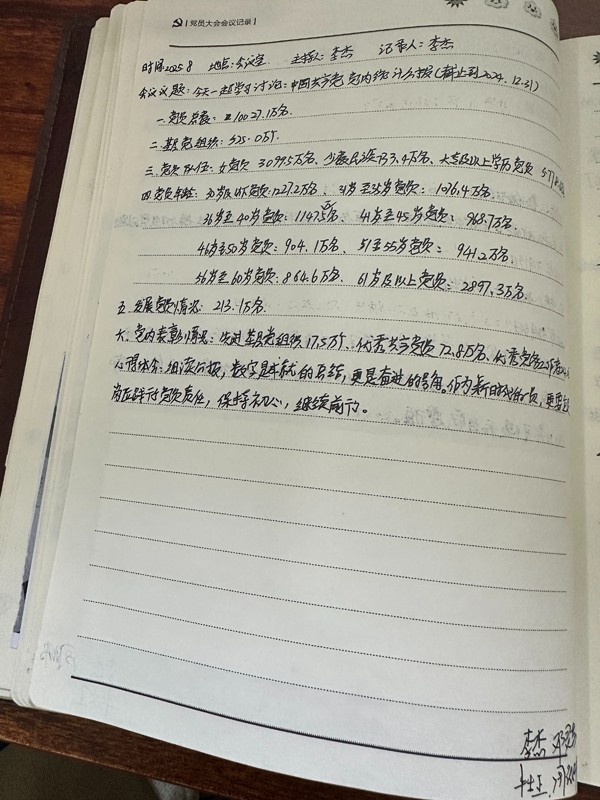 党员大会会议记录
时间2025.8 地点:会议室 主持人:李杰 记录人:李杰
会议议题:今天一起学习讨论:中国共产党党内统计公报(截止到2024.12.31)
一.党员总数:10027.1万名.
二.基层党组织:525.0万个.
三.党员队伍:女党员3099.5万名、少数民族773.4万名、大专及以上学历党员577
四.党员年龄:30岁及以下党员:1272万名、31岁至35岁党员:1076.4万名.
36岁至40岁党员:1147.5万名、41岁至45岁党员:968.7万名.
46岁至50岁党员:904.1万名、51至55岁党员:941.2万名
56岁至60岁党员:864.6万名.61岁及以上党员:2897.3万名.
五.发展党员情况:213.1万名.
六.党内表彰情况:先进基层党组织17.5万个、优秀共产党员72.8万名、优秀党务
心得体会:细读公报,数字是成就的总结,更是奋进的号角。作为新时代的党员,更要
岗位践行党员责任,保持初心,继续前行。
李杰